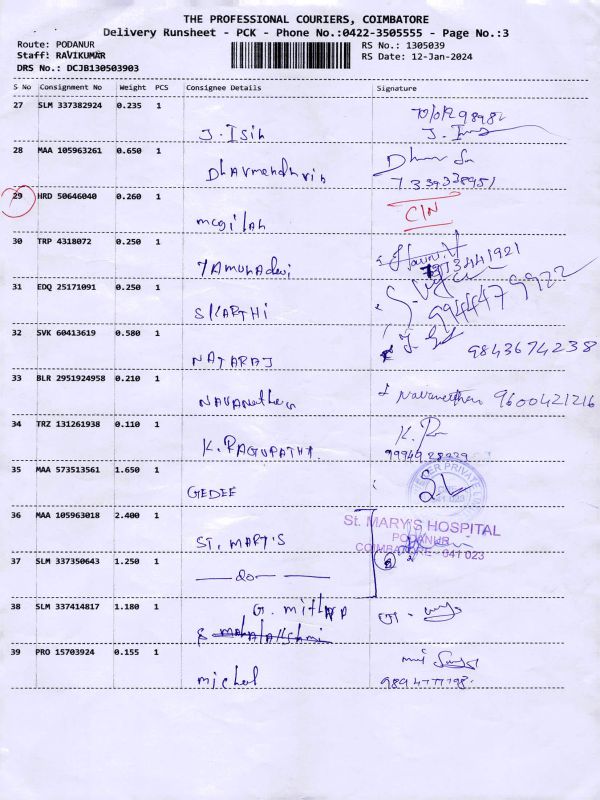 THE PROFESSIONAL COURIERS, COIMBATORE
Delivery Runsheet - PCK - Phone No.:0422-3505555 - Page No.:3
Route: PODANUR
Staff: RAVIKUMAR
DRS No.: DCJB130503903
RS No.: 1305039
RS Date: 12-Jan-2024
S No Consignment No Weight PCS Consignee Details Signature
27 SLM 337382924 0.235 1
J. Isih
28 MAA 105963261 0.650 1
Dharmendhrin
7339338951
29 HRD 50646040 0.260 1
C/N
mcgilah
30 TRP 4318072 0.250 1
Yamunadevi
31 EDQ 25171091 0.250 1
SKARTHI
9944479922
32 SVK 60413619 0.580 1
NATARAJ
9843674238
33 BLR 2951924958 0.210 1
Navaneethan
Navaneethan 9600421216
34 TRZ 131261938 0.110 1
K. RAGUPATHI.
35 MAA 573513561 1.650 1
GEDEE
36 MAA 105963018 2.400 1
ST. MARY'S
St. MARY'S HOSPITAL
PODANUR
COIMBATORE - 641 023
37 SLM 337350643 1.250 1
—do—
38 SLM 337414817 1.180 1
G. mithra
39 PRO 15703924 0.155 1
michel